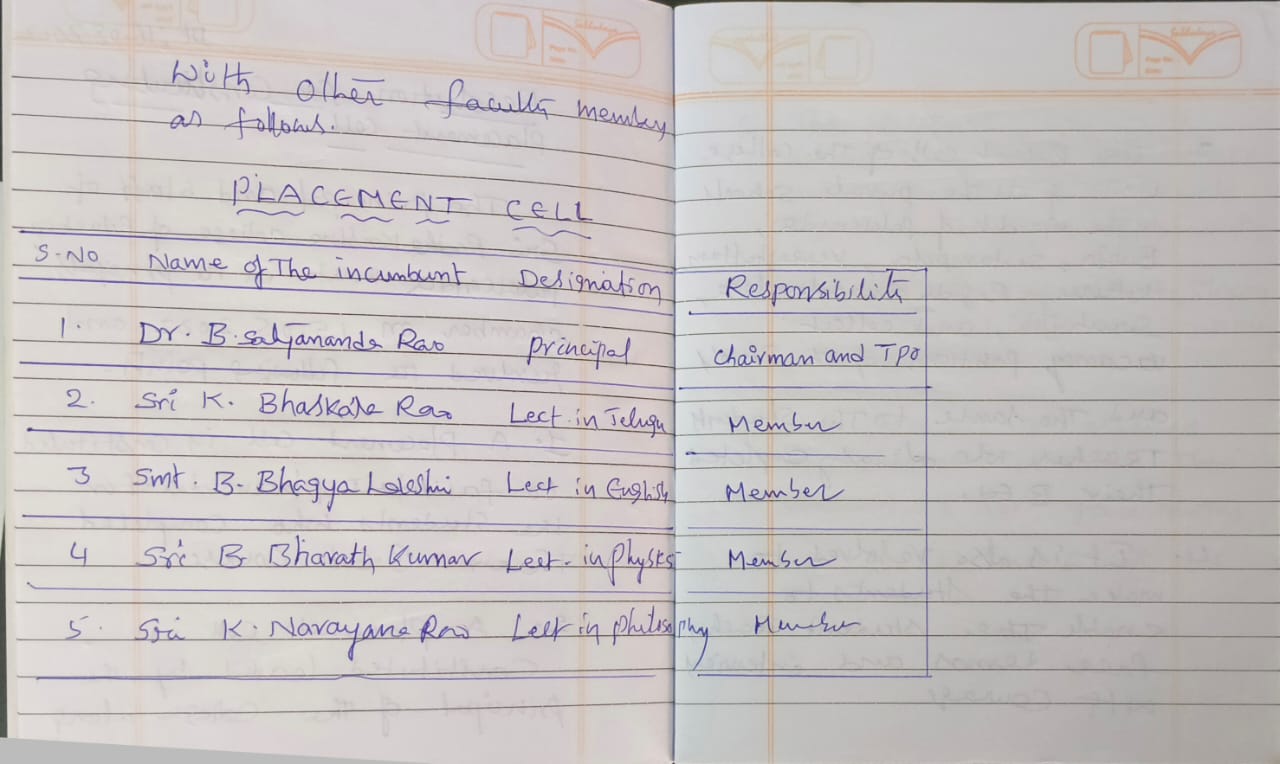 With other faculty member
as follows.
PLACEMENT CELL
S.No Name of The incumbunt Designation Responsibility
1. Dr. B. Satyananda Rao Principal Chairman and TPO
2. Sri K. Bhaskara Rao Lect. in Telugu Member
3 Smt. B. Bhagya Lakshmi Lect in English Member
4 Sri B Bharath Kumar Lect. in physics Member
5. Sri K. Narayana Rao Lect in philosophy Member